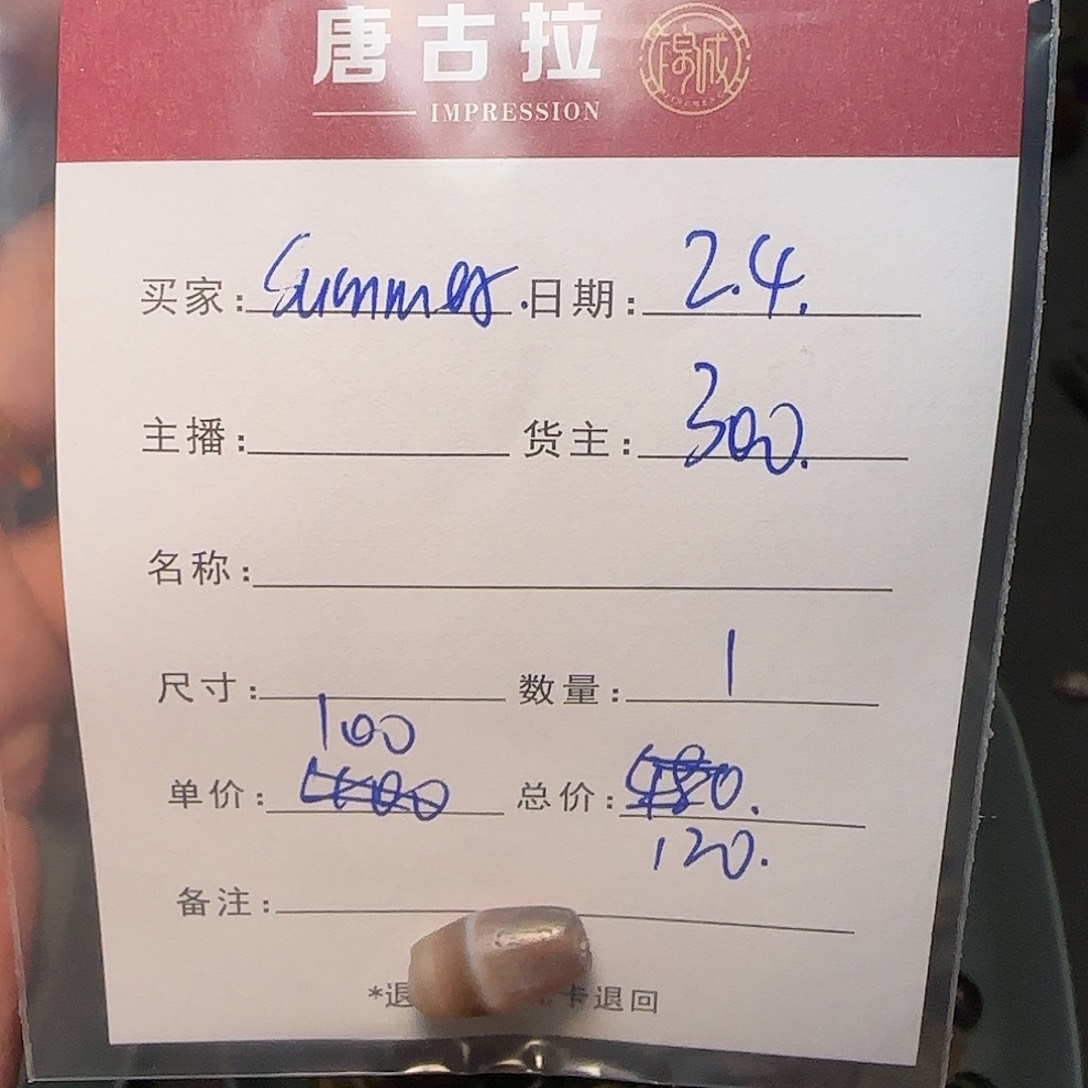 唐古拉
IMPRESSION
买家：Summer. 日期：2.4.
主播： 货主：300.
名称：
尺寸： 数量：1
100
单价： 总价：
120.
备注：
*退 卡退回